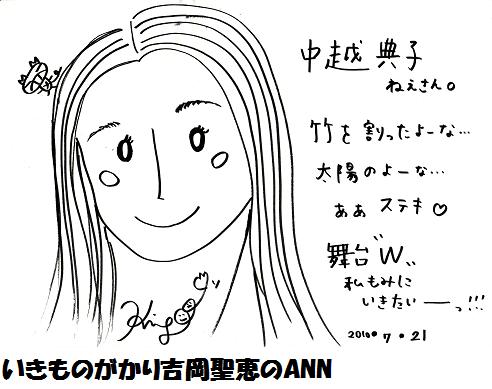 中越 典子
ねぇさん。
竹を 割ったよーな…
太陽のよーな…
ぁぁ ステキ♡
舞台〝W〟
私もみに
いきたいーっ!!!
2010・7・21
いきものがかり吉岡聖恵のANN